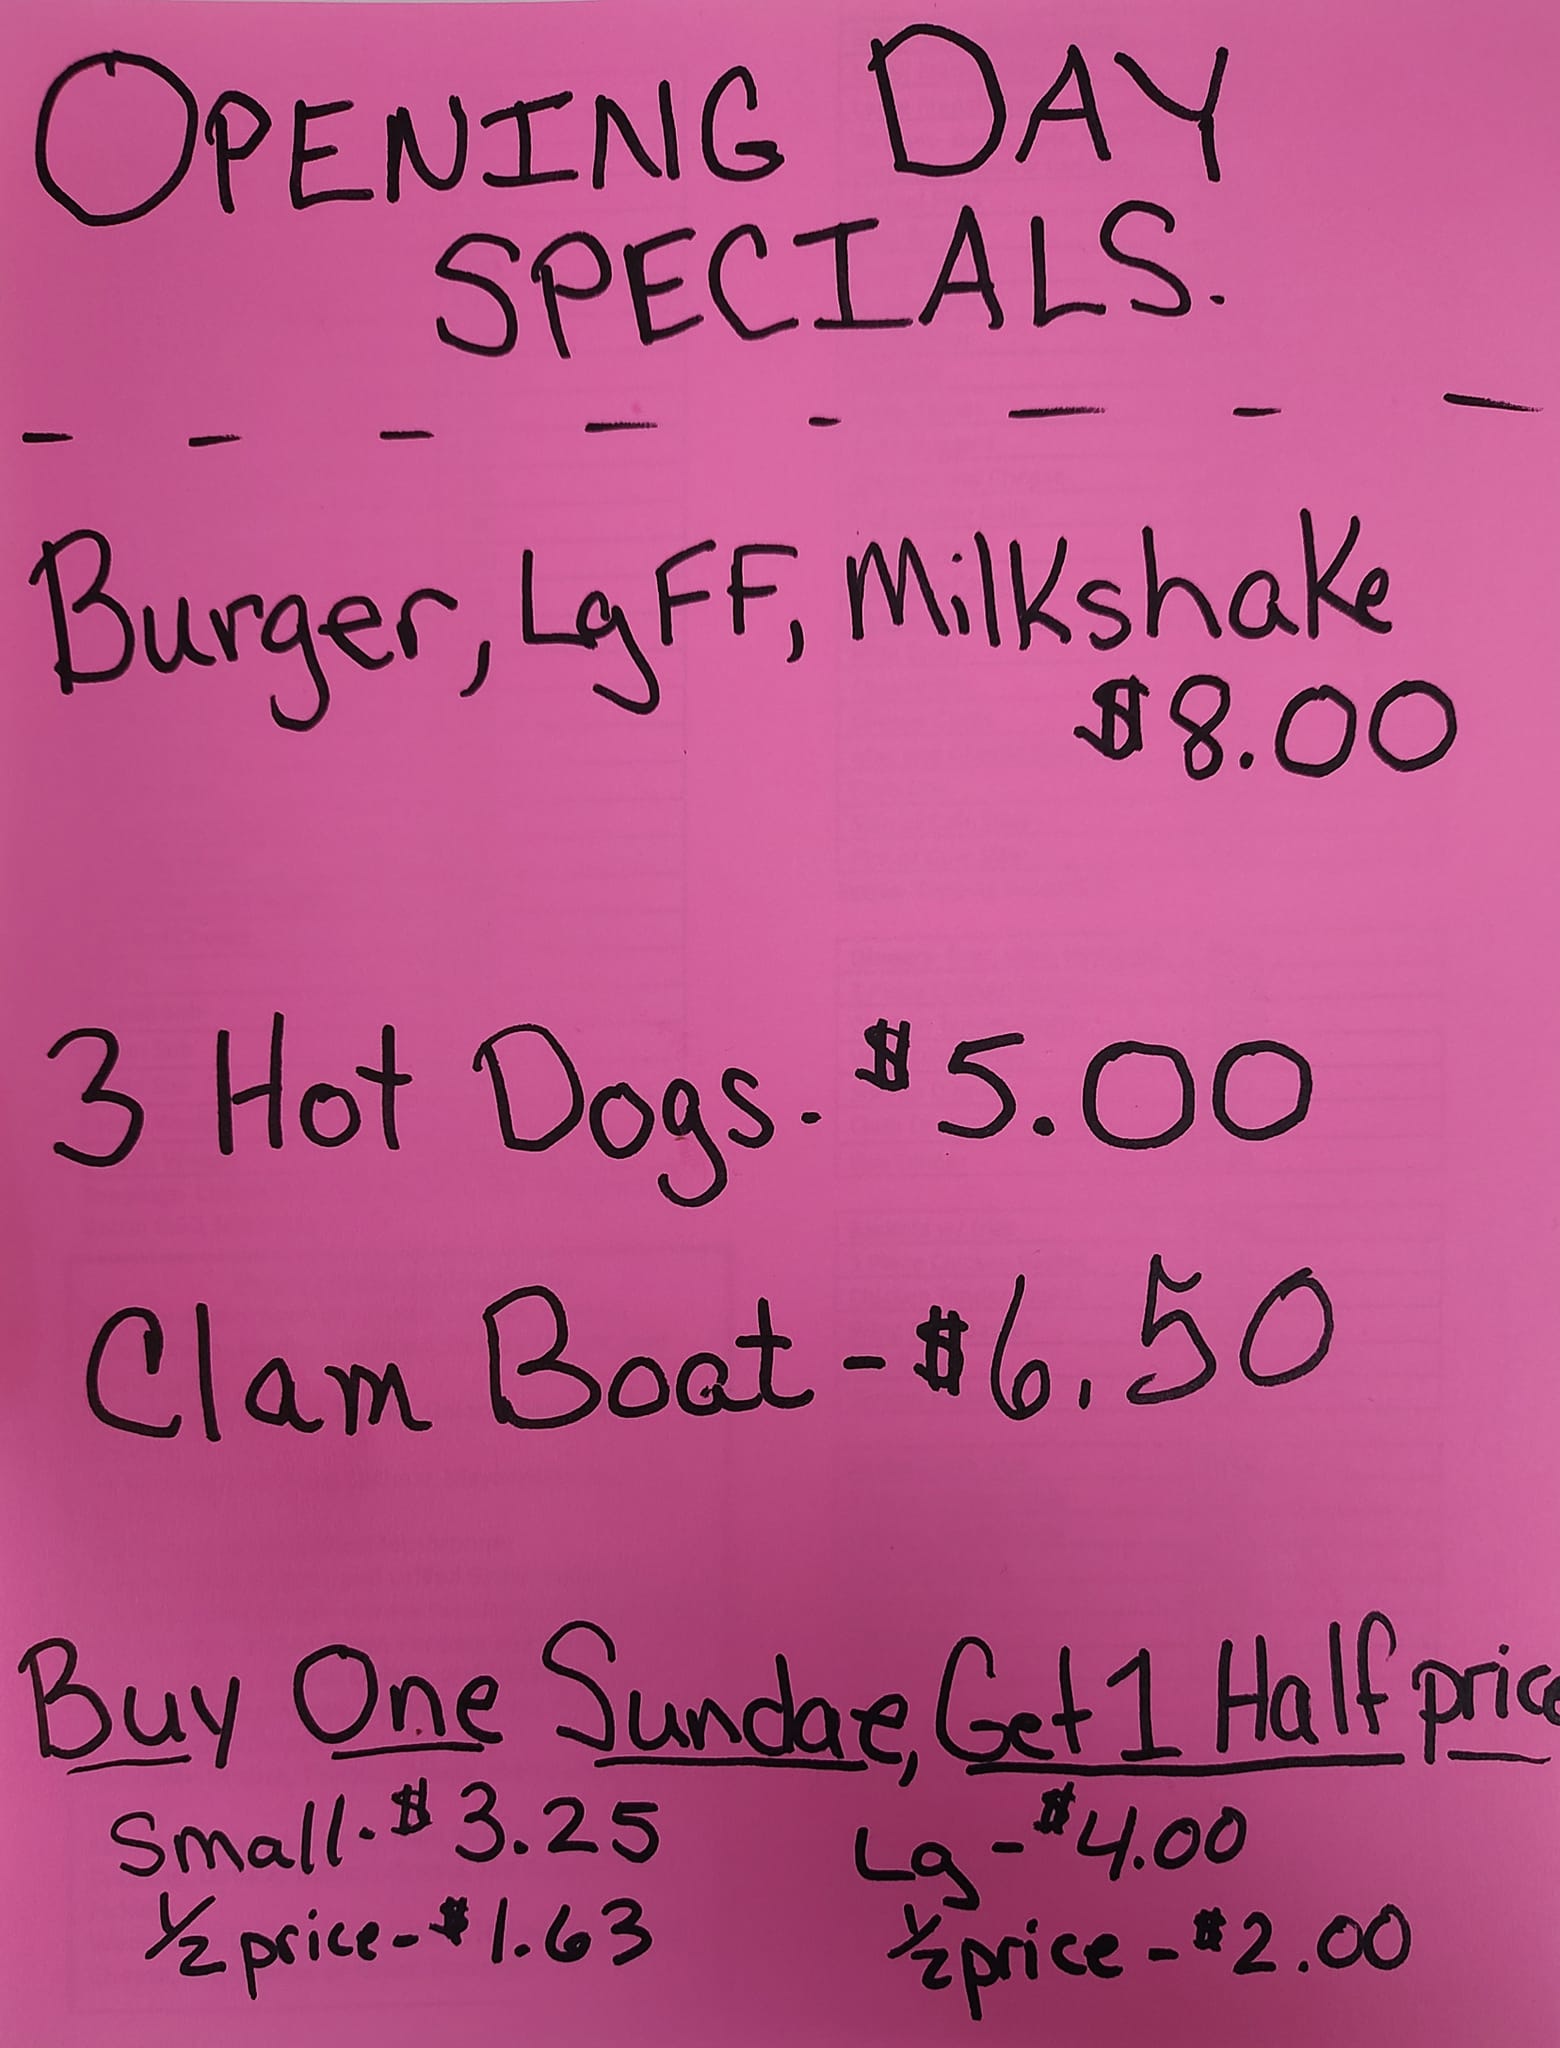 OPENING DAY
SPECIALS.
- - - - - - - -
Burger, Lg FF, Milkshake
$8.00
3 Hot Dogs. $5.00
Clam Boat - $6.50
Buy One Sundae, Get 1 Half price
Small. $3.25 Lg - $4.00
1/2 price - $1.63 1/2 price - $2.00